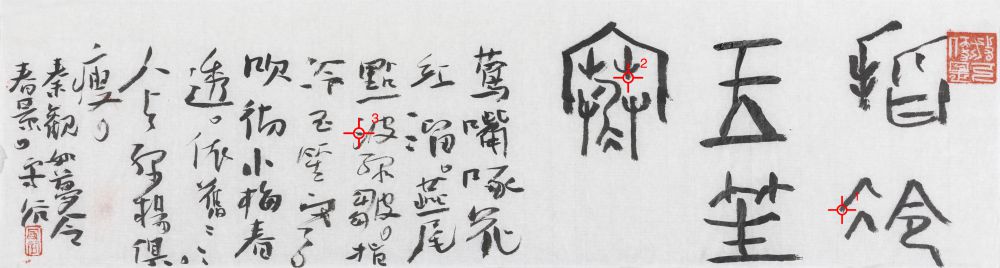 指冷
玉笙
寒
鶯嘴啄花
紅溜。燕尾
點波綠皺。指
冷玉笙寒。
吹徹小梅春
透。依舊〻
人與綠楊俱
瘦。
秦觀如夢令
春景。